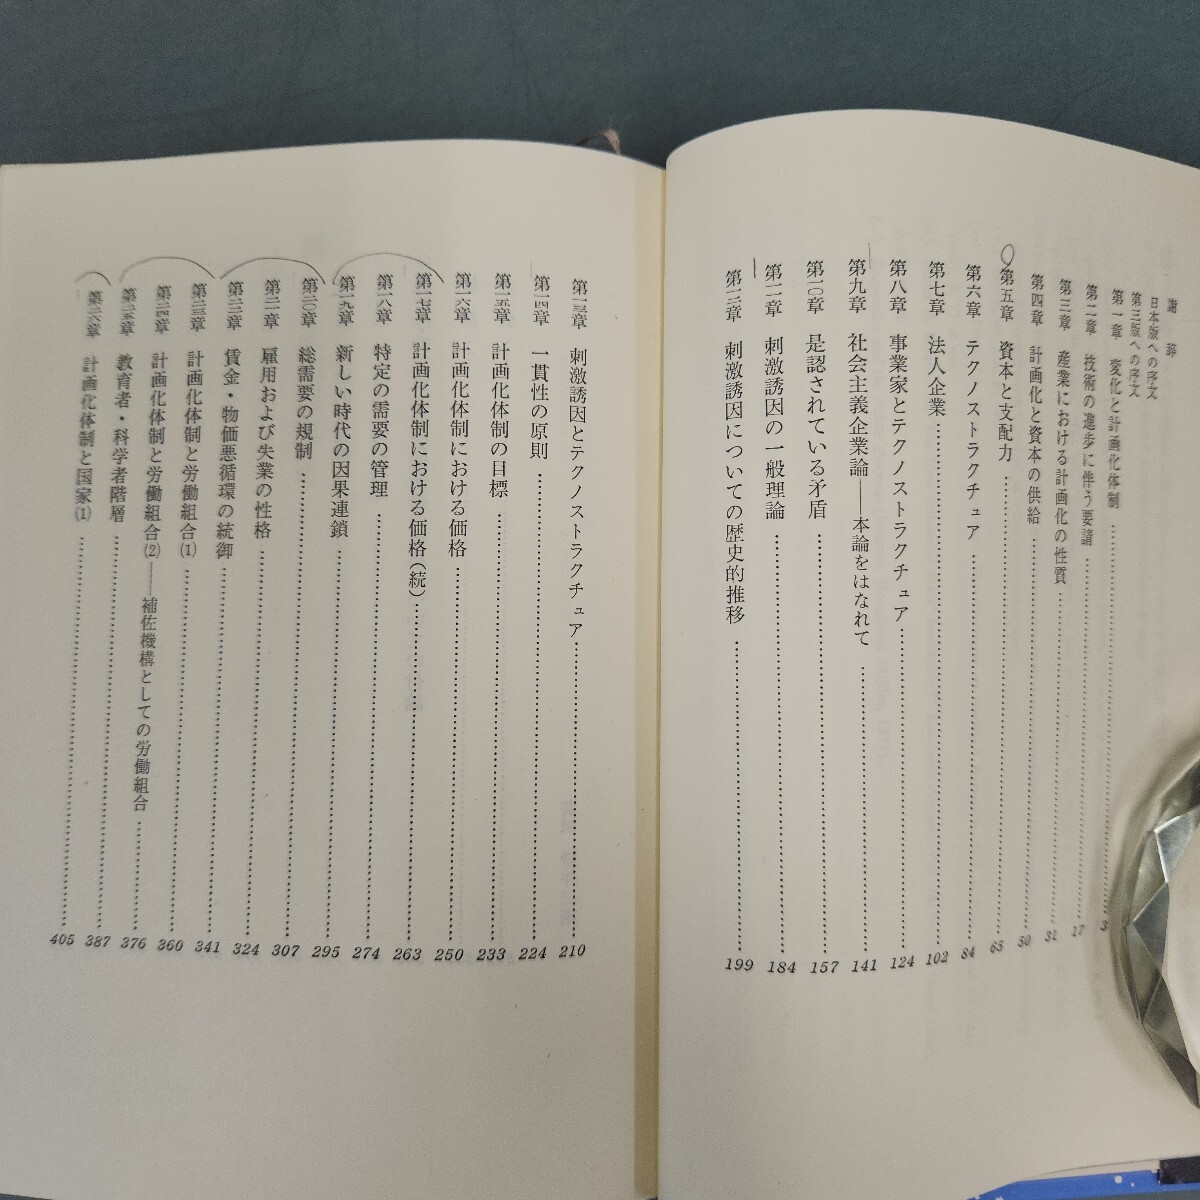 謝辞
日本版への序文
第三版への序文
第一章 変化と計画化体制 3
第二章 技術の進歩に伴う要請 17
第三章 産業における計画化の性質 31
第四章 計画化と資本の供給 50
第五章 資本と支配力 65
第六章 テクノストラクチュア 84
第七章 法人企業 102
第八章 事業家とテクノストラクチュア 124
第九章 社会主義企業論――本論をはなれて 141
第一〇章 是認されている矛盾 157
第一一章 刺激誘因の一般理論 184
第一二章 刺激誘因についての歴史的推移 199
第一三章 刺激誘因とテクノストラクチュア 210
第一四章 一貫性の原則 224
第一五章 計画化体制の目標 233
第一六章 計画化体制における価格 250
第一七章 計画化体制における価格(続) 263
第一八章 特定の需要の管理 274
第一九章 新しい時代の因果連鎖 295
第二〇章 総需要の規制 307
第二一章 雇用および失業の性格 324
第二二章 賃金・物価悪循環の統御 341
第二三章 計画化体制と労働組合(1) 360
第二四章 計画化体制と労働組合(2)――補佐機構としての労働組合 376
第二五章 教育者・科学者階層 387
第二六章 計画化体制と国家(1) 405